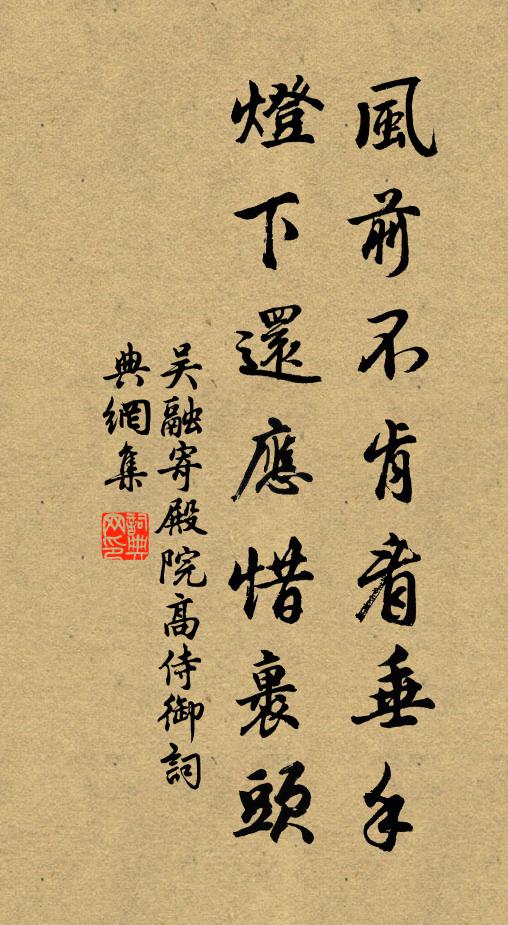 風前不肯看垂手
燈下還應惜裹頭
吳融寄殿院高侍御詞
典網集
詞典
网印